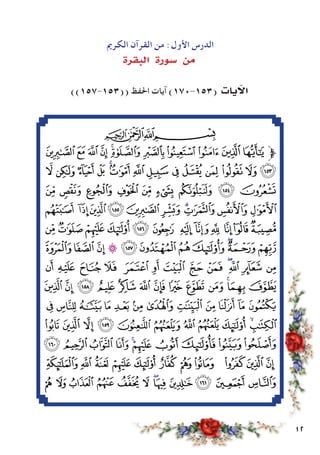 الدرس الأول: من القرآن الكريم
من سورة البقرة
الآيات (١٥٣-١٧٠) آيات الحفظ ((١٥٣-١٥٧))
بِسْمِ اللَّهِ الرَّحْمَٰنِ الرَّحِيمِ
﴿ يَٰٓأَيُّهَا ٱلَّذِينَ ءَامَنُوا۟ ٱسْتَعِينُوا۟ بِٱلصَّبْرِ وَٱلصَّلَوٰةِ إِنَّ ٱللَّهَ مَعَ ٱلصَّٰبِرِينَ
١٥٣ وَلَا تَقُولُوا۟ لِمَن يُقْتَلُ فِى سَبِيلِ ٱللَّهِ أَمْوَٰتٌۢ بَلْ أَحْيَآءٌ وَلَٰكِن لَّا
تَشْعُرُونَ ١٥٤ وَلَنَبْلُوَنَّكُم بِشَىْءٍ مِّنَ ٱلْخَوْفِ وَٱلْجُوعِ وَنَقْصٍ مِّنَ
ٱلْأَمْوَٰلِ وَٱلْأَنفُسِ وَٱلثَّمَرَٰتِ وَبَشِّرِ ٱلصَّٰبِرِينَ ١٥٥ ٱلَّذِينَ إِذَآ أَصَٰبَتْهُم
مُّصِيبَةٌ قَالُوٓا۟ إِنَّا لِلَّهِ وَإِنَّآ إِلَيْهِ رَٰجِعُونَ ١٥٦ أُو۟لَٰٓئِكَ عَلَيْهِمْ صَلَوَٰتٌ مِّن
رَّبِّهِمْ وَرَحْمَةٌ وَأُو۟لَٰٓئِكَ هُمُ ٱلْمُهْتَدُونَ ١٥٧ ۞ إِنَّ ٱلصَّفَا وَٱلْمَرْوَةَ
مِن شَعَآئِرِ ٱللَّهِ فَمَنْ حَجَّ ٱلْبَيْتَ أَوِ ٱعْتَمَرَ فَلَا جُنَاحَ عَلَيْهِ أَن
يَطَّوَّفَ بِهِمَا وَمَن تَطَوَّعَ خَيْرًا فَإِنَّ ٱللَّهَ شَاكِرٌ عَلِيمٌ ١٥٨ إِنَّ ٱلَّذِينَ
يَكْتُمُونَ مَآ أَنزَلْنَا مِنَ ٱلْبَيِّنَٰتِ وَٱلْهُدَىٰ مِنۢ بَعْدِ مَا بَيَّنَّٰهُ لِلنَّاسِ فِى
ٱلْكِتَٰبِ أُو۟لَٰٓئِكَ يَلْعَنُهُمُ ٱللَّهُ وَيَلْعَنُهُمُ ٱللَّٰعِنُونَ ١٥٩ إِلَّا ٱلَّذِينَ تَابُوا۟
وَأَصْلَحُوا۟ وَبَيَّنُوا۟ فَأُو۟لَٰٓئِكَ أَتُوبُ عَلَيْهِمْ وَأَنَا ٱلتَّوَّابُ ٱلرَّحِيمُ ١٦٠
إِنَّ ٱلَّذِينَ كَفَرُوا۟ وَمَاتُوا۟ وَهُمْ كُفَّارٌ أُو۟لَٰٓئِكَ عَلَيْهِمْ لَعْنَةُ ٱللَّهِ وَٱلْمَلَٰٓئِكَةِ
وَٱلنَّاسِ أَجْمَعِينَ ١٦١ خَٰلِدِينَ فِيهَا لَا يُخَفَّفُ عَنْهُمُ ٱلْعَذَابُ وَلَا هُمْ
١٢